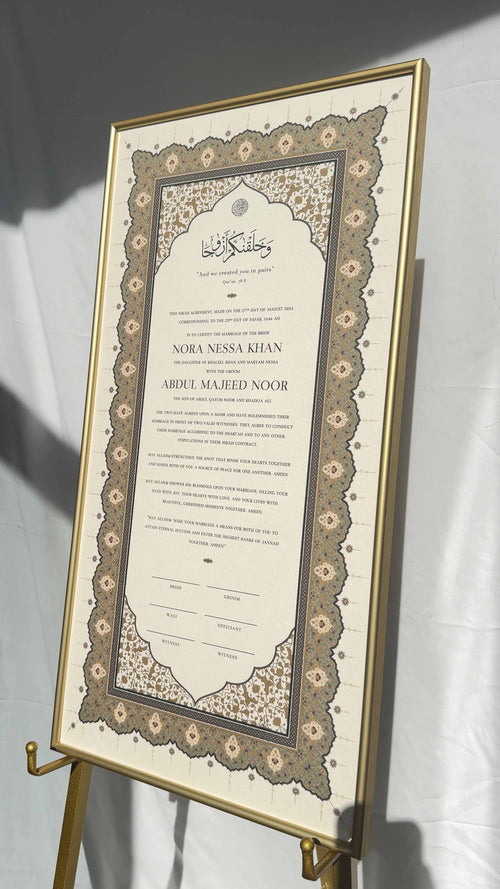 وَخَلَقْنَاكُمْ أَزْوَاجًا
"And we created you in pairs"
Qur'an 78:8
THIS NIKAH AGREEMENT, MADE ON THE 27TH DAY OF AUGUST 2024
CORRESPONDING TO THE 23RD DAY OF SAFAR, 1446 AH
IS TO CERTIFY THE MARRIAGE OF THE BRIDE
NORA NESSA KHAN
THE DAUGHTER OF KHALEEL KHAN AND MARYAM NESSA
WITH THE GROOM
ABDUL MAJEED NOOR
THE SON OF ABDUL QAYUM NOOR AND KHADIJA ALI
THE TWO HAVE AGREED UPON A MAHR AND HAVE SOLEMNISED THEIR
MARRIAGE IN FRONT OF TWO VALID WITNESSES. THEY AGREE TO CONDUCT
THEIR MARRIAGE ACCORDING TO THE SHARI'AH AND TO ANY OTHER
STIPULATIONS IN THEIR NIKAH CONTRACT.
MAY ALLAH STRENGTHEN THE KNOT THAT BINDS YOUR HEARTS TOGETHER
AND MAKES BOTH OF YOU A SOURCE OF PEACE FOR ONE ANOTHER. AMEEN
MAY ALLAH SHOWER HIS BLESSINGS UPON YOUR MARRIAGE, FILLING YOUR
DAYS WITH JOY, YOUR HEARTS WITH LOVE, AND YOUR LIVES WITH
BEAUTIFUL, CHERISHED MOMENTS TOGETHER. AMEEN.
"MAY ALLAH MAKE YOUR MARRIAGE A MEANS FOR BOTH OF YOU TO
ATTAIN ETERNAL SUCCESS AND ENTER THE HIGHEST RANKS OF JANNAH
TOGETHER. AMEEN."
BRIDE GROOM
WALI OFFICIANT
WITNESS WITNESS